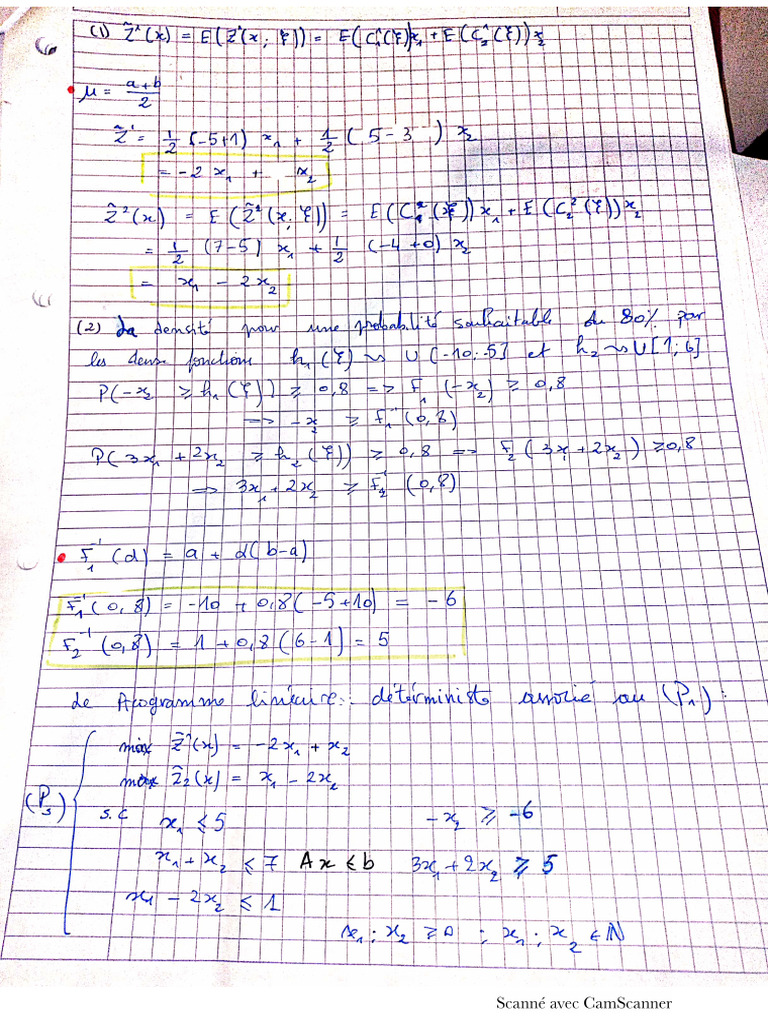 (1) Z̃¹(x) = E(Z̃¹(x; ξ)) = E(C₁¹(ξ))x₁ + E(C₂¹(ξ))x₂
• μ = (a+b)/2
Z̃¹ = 1/2 (-5+1) x₁ + 1/2 (5-3) x₂
= -2x₁ + x₂
Z̃²(x) = E(Z̃²(x; ξ)) = E(C₁²(ξ))x₁ + E(C₂²(ξ))x₂
= 1/2 (7-5) x₁ + 1/2 (-4+0) x₂
= x₁ - 2x₂
(2) La densité pour une probabilité souhaitable du 80% par
les deux fonctions h₁(ξ) ~ U[-10;-5] et h₂ ~ U[1;6]
P(-x₂ ≥ h₁(ξ)) ≥ 0,8 => F₁(-x₂) ≥ 0,8
=> -x₂ ≥ F₁⁻¹(0,8)
P(3x₁ + 2x₂ ≥ h₂(ξ)) ≥ 0,8 => F₂(3x₁+2x₂) ≥ 0,8
=> 3x₁ + 2x₂ ≥ F₂⁻¹(0,8)
• F₁⁻¹(d) = a + d(b-a)
F₁⁻¹(0,8) = -10 + 0,8(-5+10) = -6
F₂⁻¹(0,8) = 1 + 0,8(6-1) = 5
Le Programme linéaire : déterministe associé au (P₁) :
max Z̃¹(x) = -2x₁ + x₂
max Z̃₂(x) = x₁ - 2x₂
(P₃) s.c x₁ ≤ 5 -x₂ ≥ -6
x₁ + x₂ ≤ 7 Ax ≤ b 3x₁ + 2x₂ ≥ 5
x₁ - 2x₂ ≤ 1
x₁ ; x₂ ≥ 0 ; x₁ ; x₂ ∈ ℕ
Scanné avec CamScanner